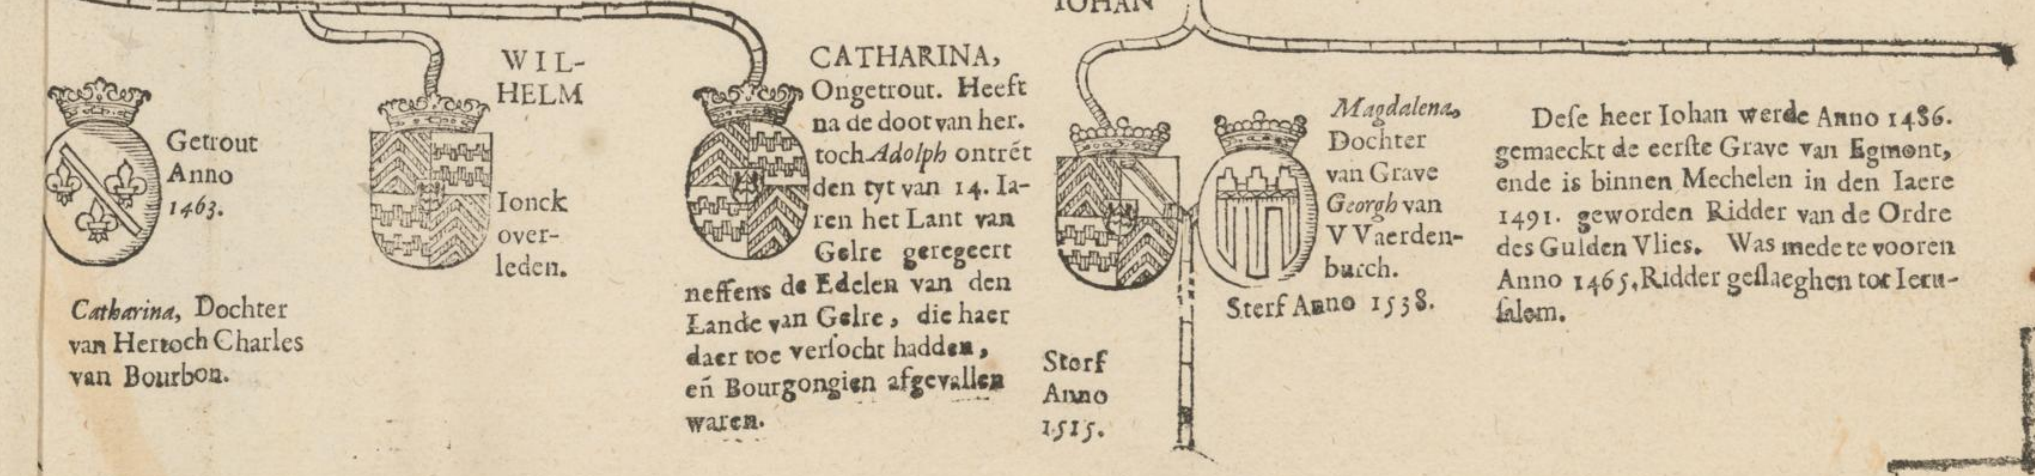 Getrout
Anno
1463.
Catharina, Dochter
van Hertoch Charles
van Bourbon.
WIL-
HELM
Ionck
over-
leden.
CATHARINA,
Ongetrout. Heeft
na de doot van her-
toch Adolph ontrēt
den tyt van 14. Ia-
ren het Lant van
Gelre geregeert
neffens de Edelen van den
Lande van Gelre, die haer
daer toe verſocht hadden,
eñ Bourgongien afgevallen
waren.
IOHAN
Storf
Anno
1515.
Magdalena,
Dochter
van Grave
Georgh van
VVaerden-
burch.
Sterf Anno 1538.
Deſe heer Iohan werde Anno 1486.
gemaeckt de eerſte Grave van Egmont,
ende is binnen Mechelen in den Iaere
1491. geworden Ridder van de Ordre
des Gulden Vlies. Was mede te vooren
Anno 1465. Ridder geſlaeghen tot Ieru-
ſalem.